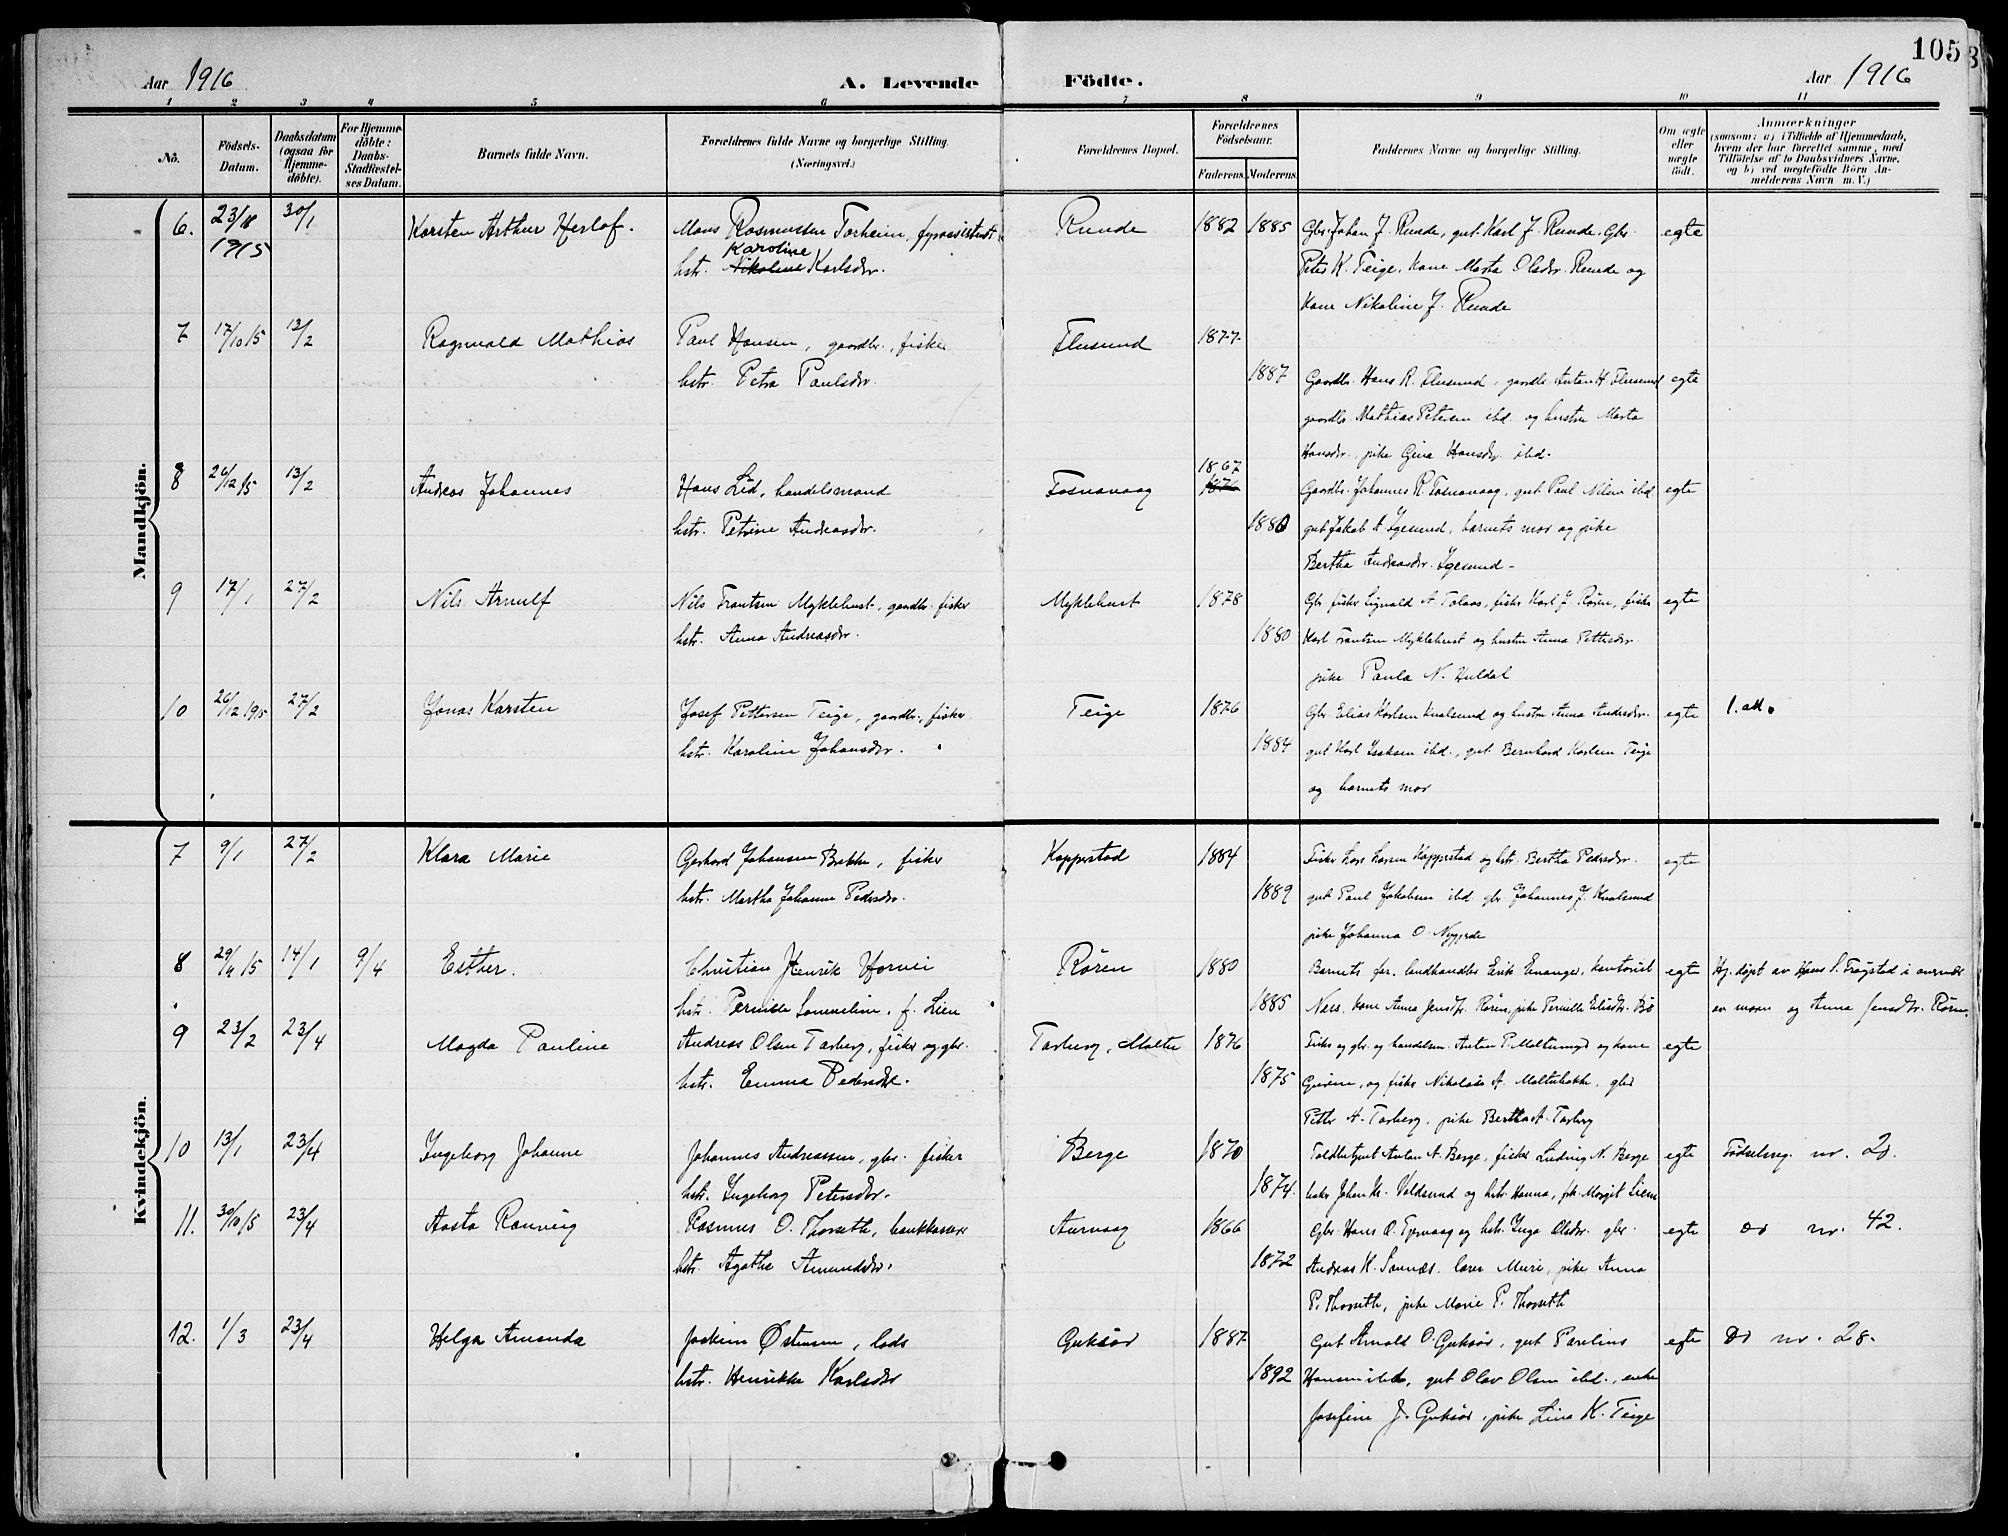 105
Aar 1916 A. Levende Födte. Aar 1916
1 2 3 4 5 6 7 8 9 10 11
No.
Födsels-Datum.
Daabsdatum (ogsaa for Hjemme-döbte).
For Hjemme-döbte: Daabs-Stadfæstel-ses Datum.
Barnets fulde Navn.
Forældrenes fulde Navne og borgerlige Stilling.
(Næringsvei.)
Forældrenes Bopæl.
Forældrenes Födselsaar.
Faderens. Moderens.
Faddernes Navne og borgerlige Stilling.
Om ægte eller uægte födt.
Anmærkninger
(saasom: a) i Tilfælde af Hjemmedaab,
hvem der har forrettet samme, med
Tilföielse af to Daabsvidners Navne,
og b) ved uægtefödte Börn An-
melderens Navn m. V.)
Mandkjön.
6. 23/11 30/1 Karsten Arthur Herlof. Mons Rasmussen Torheim, fyrassistent Runde 1882 1885 Gbr. Johan J. Runde, gut Karl J. Runde, Gbr. egte
1915 Karoline
hstr. Nikoline Karlsdr. Peter K. Teige, kone Marta Olsdr. Runde og
kone Nikoline J. Runde
7 17/10 15 13/2 Ragnvald Mathias Paul Hansen, gaardbr., fisker Flusund 1877
hstr. Petra Paulsdr. 1887 Gaardbr. Hans R. Flusund, gaardbr. Anton H. Flusund egte
gaardbr. Mathias Petersen ibd. og hustru Marta
Hansdr. pike Gina Hansdr. ibd.
1867
8 26/12 15 13/2 Andreas Johannes Hans Lid, handelsmand Fosnavaag 1876 Gaardbr. Johannes R. Fosnavaag, gut Paul Nilsen ibd. egte
hstr. Petrine Andreasdr. 1880 gut Jakob A. Igesund, barnets mor og pike
Bertha Andreasdr. Igesund
9 17/1 27/2 Nils Arnulf Nils Frantsen Myklebust, gaardbr. fisker Myklebust 1878 Gbr. fisker Sigvald A. Tolaas, fisker Karl J. Røren, fisker egte
hstr. Anna Andreasdr. 1880 Karl Frantsen Myklebust og hustru Anna Pettersdr.
pike Paula N. Huldal
10 26/12 1915 27/2 Jonas Karsten Josef Pettersen Teige, gaardbr., fisker Teige 1876 Gbr. Elias Karlsen Kvalsund og hustru Anna Andersdr. egte 1. att.
hstr. Karoline Johansdr. 1884 gut Karl Isaksen ibd., gut Bernhard Karlsen Teige
og barnets mor
Kvindekjön.
7 9/1 27/2 Klara Marie Gerhard Johansen Bakke, fisker Koppestad 1884 Fisker Lars Larsen Koppestad og hstr. Bertha Pedersdr. egte
hstr. Martha Johanna Pedersdr. 1889 gut Paul Jakobsen ibd. gbr. Johannes J. Kvalsund
pike Johanna O. Nygjerde
8 29/11 15 14/1 9/4 Esther. Christian Henrik Hornei Røren 1880 Barnets far, landhandler Erik Emanger, kontorist egte Hj. døpt av Hans S. Frøystad i nærvær
hstr. Pernille Lovmeline, f. Lien 1885 Næss, kone Anna Jensdtr. Røren, pike Pernille Elisdtr. Bø av moren og Anna Jensdtr. Røren.
9 23/2 23/4 Magda Pauline Andreas Olsen Tarberg, fisker og gbr. Tarberg, Molte 1876 Fisker og gbr. og handelsm. Anton P. Moltumyr og kone egte
hstr. Emma Pedersdr. 1875 Gurine, og fisker Nikolais A. Moltubakke, gbr.
Petter A. Tarberg, pike Bertha A. Tarberg
10 13/1 23/4 Ingeborg Johanne Johannes Andreassen, gbr. fisker Berge 1870 Toldbetjent Anton A. Berge, fisker Ludvig N. Berge egte Fødselreg. nr. 20.
hstr. Ingeborg Petersdr. 1874. fisker Johan K. Voldsund og hstr. Hanna, pk. Margit Liem
11. 30/10 15 23/4 Aasta Ranveig Rasmus O. Thorseth, bankkasser Aurvaag 1866 Gbr. Hans O. Tjervaag og hstr. Inga Olsdr. gbr. egte Do nr. 42.
hstr. Agathe Amundsdr. 1872 Andreas K. Søvnæs, lærer Muri, pike Anna
P. Thorseth, pike Marie P. Thorseth
12. 1/3 23/4 Helga Amanda Joakim Østensen, lods Gurksør 1887 Gut Arnold O. Gurksør, gut Paulius egte Do nr. 28.
hstr. Henrikke Karlsdr 1892 Hansen ibd., gut Olav Olsen ibd., enke
Josefine J. Gurksør, pike Lina K. Teige